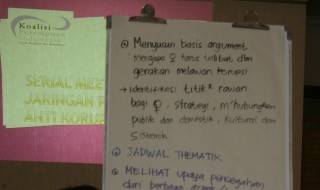 Koalisi
Perempuan
SERIAL MEE
JARINGAN P
ANTI KORUP
Menyusun basis argument
mengapa ♀ harus terlibat dlm
gerakan melawan korupsi
→ Identifikasi titik² rawan
bagi ♀, strategi, m'hubungkan
publik dan domestik, kultural dan
sistemik
JADWAL THEMATIK
MELIHAT upaya pencegahan
dari berbagai